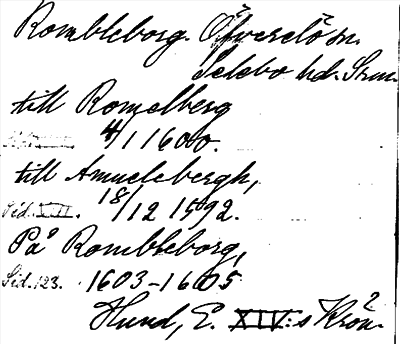 Rombleborg. Öfverselö sn.
Selebo hd. Srm.
till Romelberg
4/1 1600.
till Amuclebergh,
18/12 1592.
Sid.
På Rombleborg,
Sid. 123. 1603-1605
Hund, E. XIV:s Krön.